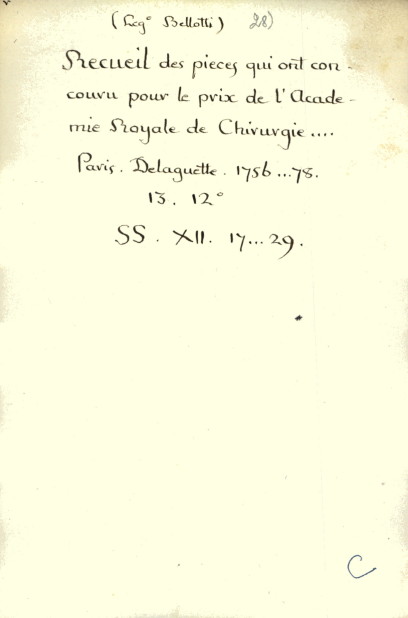 (Leg° Bellotti) 28)
Recueil des pieces qui ont con-
couru pour le prix de l'Acade-
mie Royale de Chirurgie....
Paris. Delaguette. 1756...78.
13. 12°
SS. XII. 17...29.
C